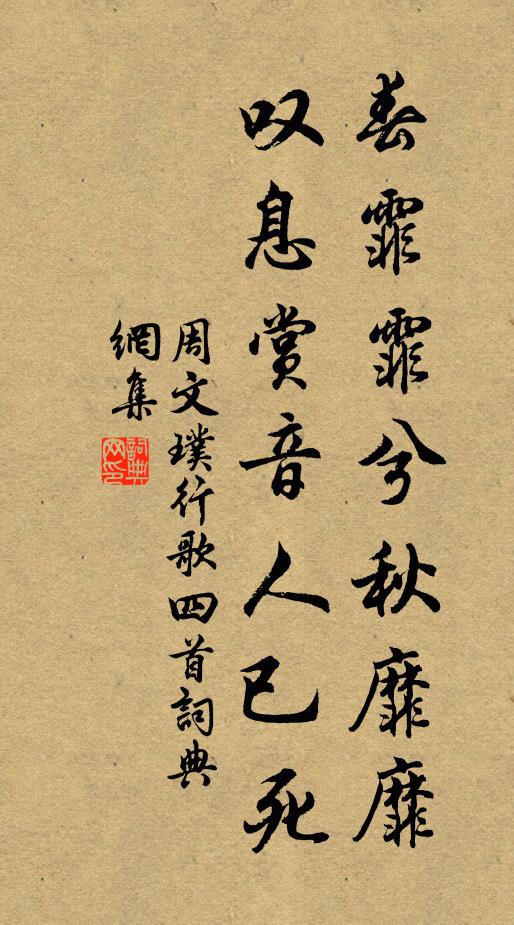 春霏霏兮秋靡靡
叹息賞音人已死
周文璞行歌四首詞典
網集
詞典网印